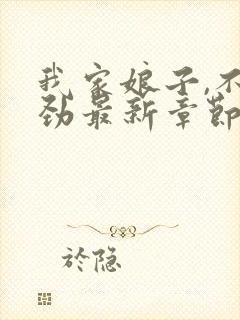 我家娘子,不
劲最新章節
於隐